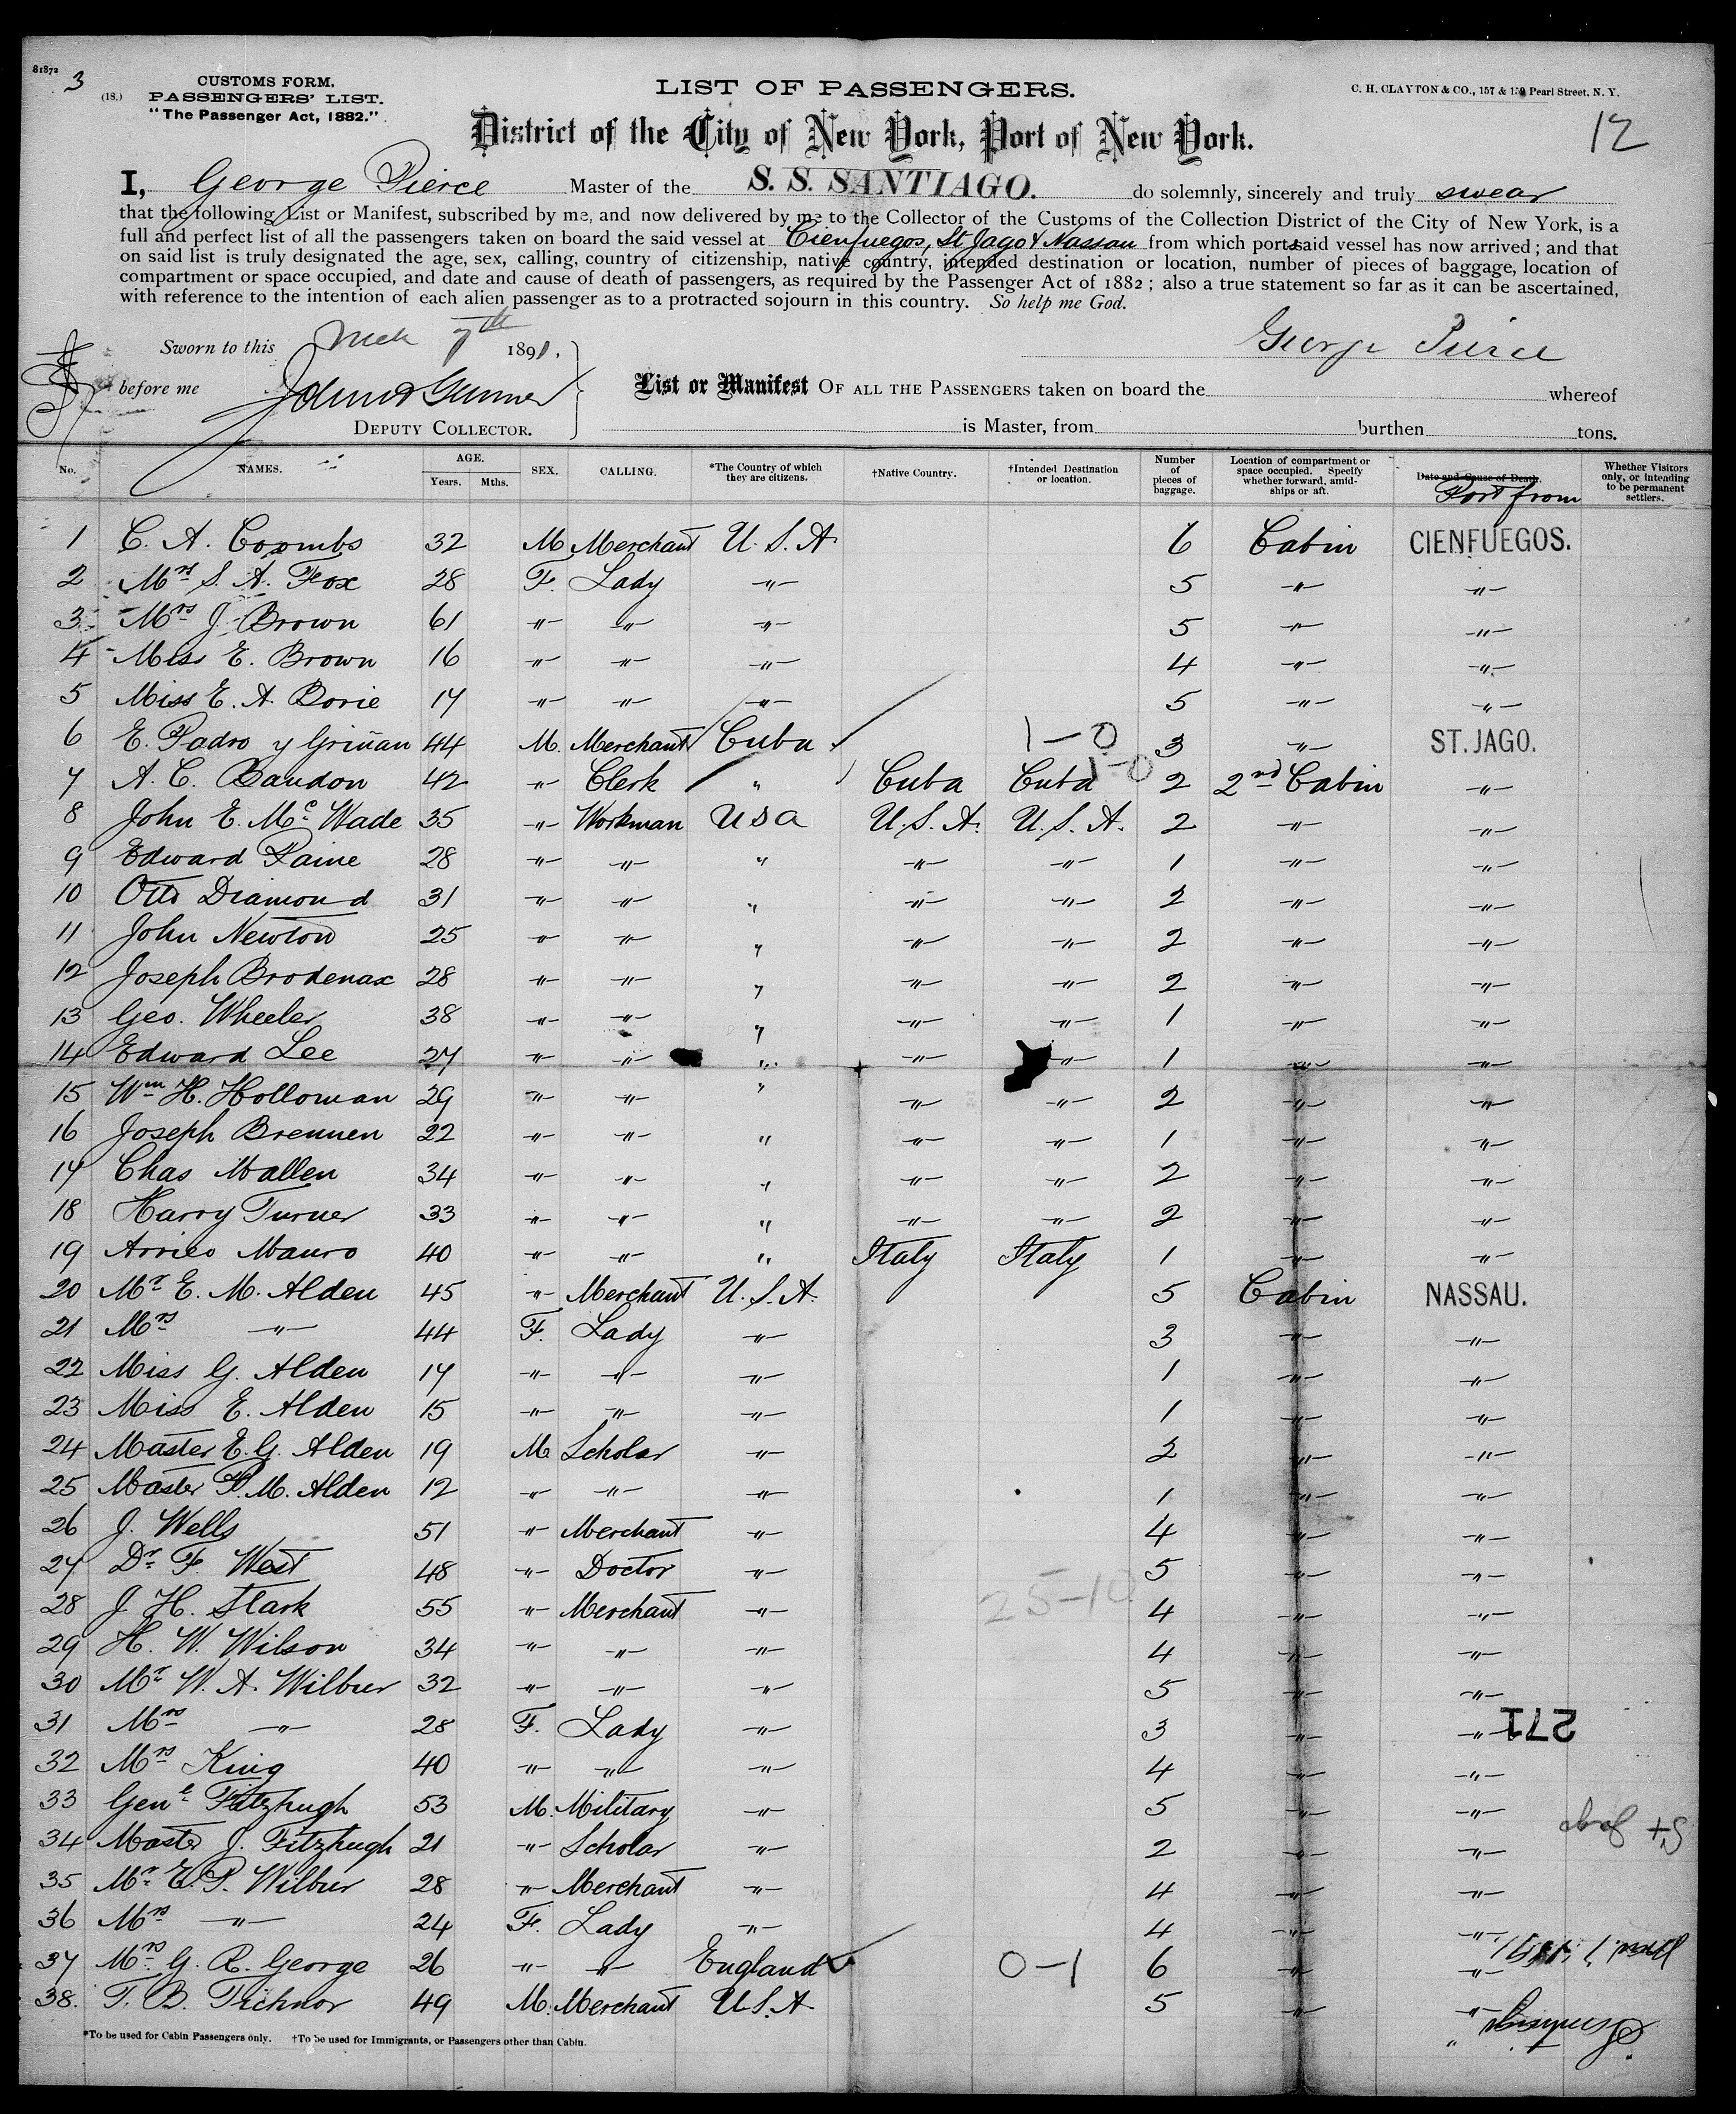 81872 3
(18.) CUSTOMS FORM. LIST OF PASSENGERS. C. H. CLAYTON & CO., 157 & 159 Pearl Street, N. Y.
PASSENGERS' LIST.
"The Passenger Act, 1882."
District of the City of New York, Port of New York. 12
I, George Pierce Master of the S. S. SANTIAGO. do solemnly, sincerely and truly swear
that the following List or Manifest, subscribed by me, and now delivered by me to the Collector of the Customs of the Collection District of the City of New York, is a
full and perfect list of all the passengers taken on board the said vessel at Cienfuegos, St Jago & Nassau from which ports said vessel has now arrived; and that
on said list is truly designated the age, sex, calling, country of citizenship, native country, intended destination or location, number of pieces of baggage, location of
compartment or space occupied, and date and cause of death of passengers, as required by the Passenger Act of 1882; also a true statement so far as it can be ascertained,
with reference to the intention of each alien passenger as to a protracted sojourn in this country. So help me God.
Sworn to this Mch 7th 1891, George Pierce
before me List or Manifest OF ALL THE PASSENGERS taken on board the whereof
DEPUTY COLLECTOR. is Master, from burthen tons.
No. NAMES. AGE. Years. Mths. SEX. CALLING. *The Country of which they are citizens. †Native Country. †Intended Destination or location. Number of pieces of baggage. Location of compartment or space occupied. Specify whether forward, amidships or aft. Date and Cause of Death. Port from Whether Visitors only, or intending to be permanent settlers.
1 C. A. Coombs 32 M Merchant U.S.A. 6 Cabin CIENFUEGOS.
2 Mrs S. A. Fox 28 F. Lady " 5 " "
3 Mrs J. Brown 61 " " " 5 " "
4 Miss E. Brown 16 " " " 4 " "
5 Miss E. A. Borie 17 " " " 5 " "
6 E. Padro y Griñan 44 M. Merchant Cuba 1-0 3 " ST. JAGO.
7 A. C. Baudon 42 " Clerk " Cuba Cuba 1-0 2 2nd Cabin "
8 John E. McWade 35 " Workman USA U.S.A. U.S.A. 2 " "
9 Edward Paine 28 " " " " " 1 " "
10 Otto Diamond 31 " " " " " 2 " "
11 John Newton 25 " " " " " 2 " "
12 Joseph Brodenax 28 " " " " " 2 " "
13 Geo. Wheeler 38 " " " " " 1 " "
14 Edward Lee 27 " " " " " 1 " "
15 Wm H. Holloman 29 " " " " " 2 " "
16 Joseph Brennen 22 " " " " " 1 " "
17 Chas Mallen 34 " " " " " 2 " "
18 Harry Turner 33 " " " " " 2 " "
19 Arrico Mauro 40 " " " Italy Italy 1 " "
20 Mr E. M. Alden 45 " Merchant U.S.A. 5 Cabin NASSAU.
21 Mrs " 44 F. Lady " 3 " "
22 Miss G. Alden 17 " " " 1 " "
23 Miss E. Alden 15 " " " 1 " "
24 Master E. G. Alden 19 M Scholar " 2 " "
25 Master P. M. Alden 12 " " " 1 " "
26 J. Wells 51 " Merchant " 4 " "
27 Dr F. West 48 " Doctor " 5 " "
28 J. H. Stark 55 " Merchant " 25-10 4 " "
29 H. W. Wilson 34 " " " 4 " "
30 Mr W. A. Wilbur 32 " " " 5 " "
31 Mrs " 28 F. Lady " 3 " " 271
32 Mrs King 40 " " " 4 " "
33 Genl Fitzhugh 53 M. Military " 5 " "
34 Master J. Fitzhugh 21 " Scholar " 2 " " St Jago
35 Mr E. P. Wilbur 28 " Merchant " 4 " "
36 Mrs " 24 F. Lady " 4 " "
37 Mrs G. R. George 26 " " England 0-1 6 " "
38. T. B. Tichnor 49 M. Merchant U.S.A 5 " "
Santiago
*To be used for Cabin Passengers only. †To be used for Immigrants, or Passengers other than Cabin.